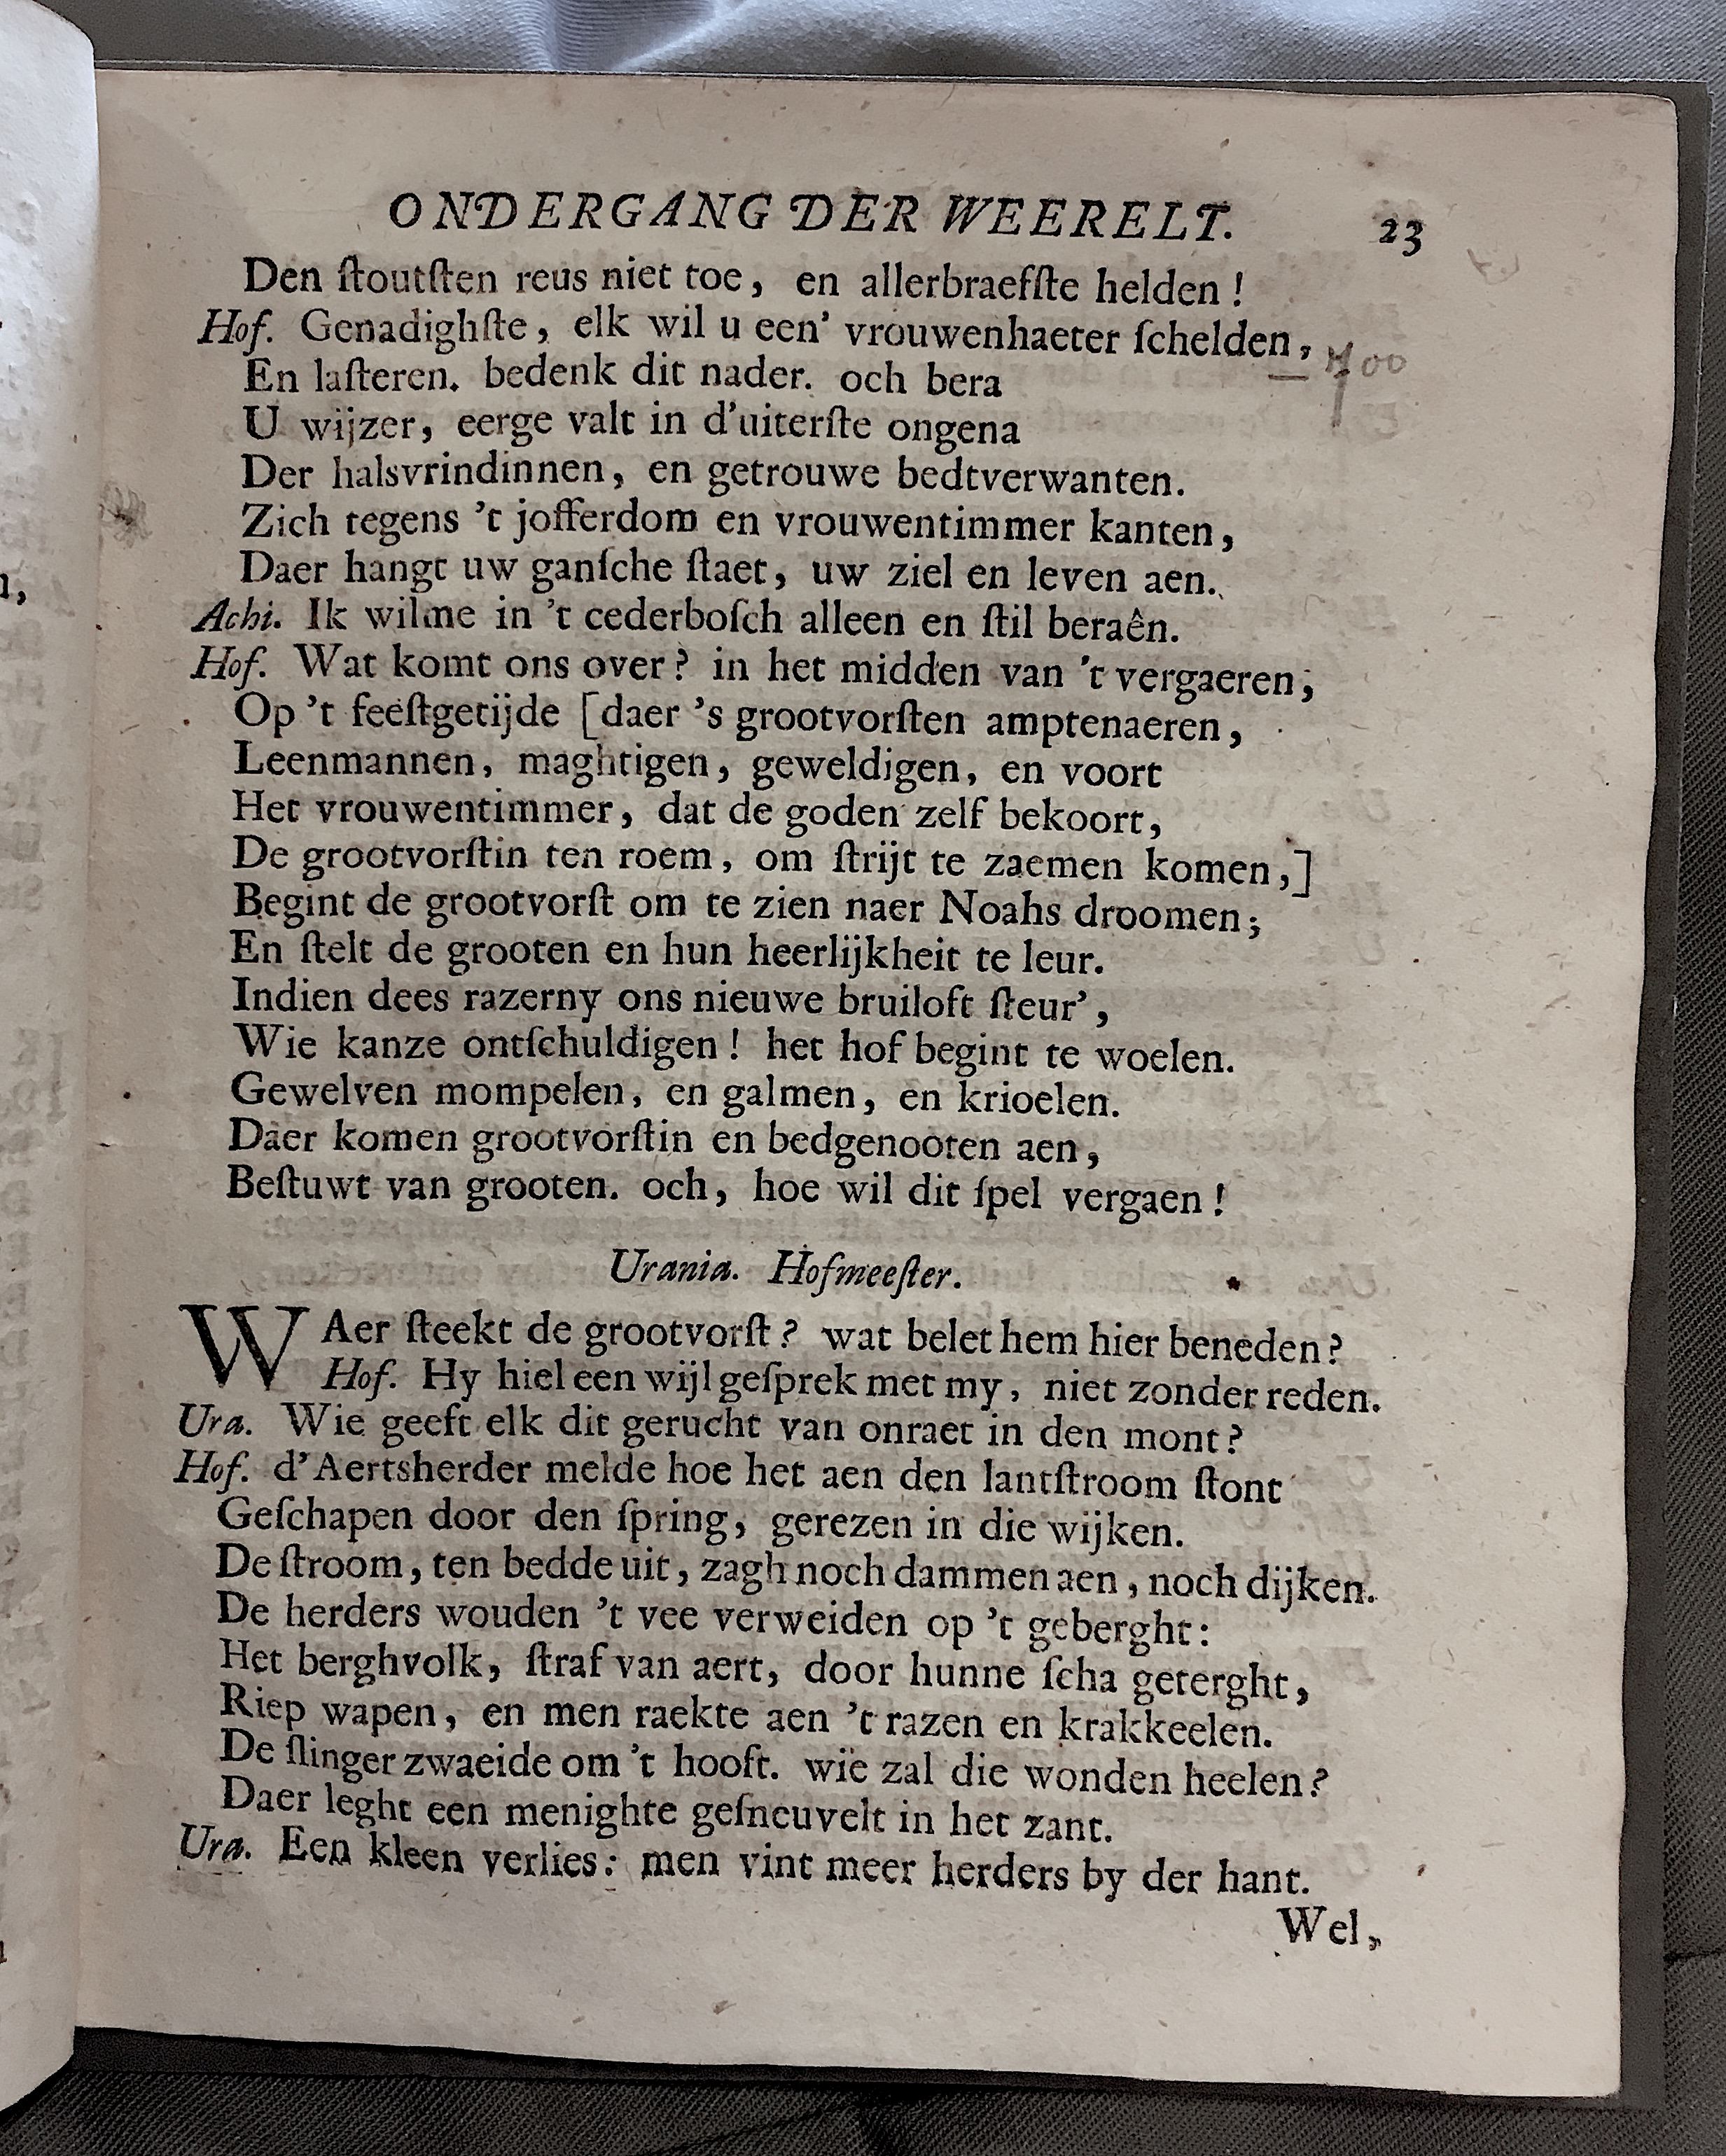 ONDERGANG DER WEERELT. 23
Den ſtoutſten reus niet toe, en allerbraefſte helden!
Hof. Genadighſte, elk wil u een' vrouwenhaeter ſchelden,
En laſteren. bedenk dit nader. och bera
U wijzer, eerge valt in d'uiterſte ongena
Der halsvrindinnen, en getrouwe bedtverwanten.
Zich tegens 't jofferdom en vrouwentimmer kanten,
Daer hangt uw ganſche ſtaet, uw ziel en leven aen.
Achi. Ik wilme in 't cederboſch alleen en ſtil beraên.
Hof. Wat komt ons over? in het midden van 't vergaeren,
Op 't feeſtgetijde [daer 's grootvorſten amptenaeren,
Leenmannen, maghtigen, geweldigen, en voort
Het vrouwentimmer, dat de goden zelf bekoort,
De grootvorſtin ten roem, om ſtrijt te zaemen komen,]
Begint de grootvorſt om te zien naer Noahs droomen;
En ſtelt de grooten en hun heerlijkheit te leur.
Indien dees razerny ons nieuwe bruiloft ſteur',
Wie kanze ontſchuldigen! het hof begint te woelen.
Gewelven mompelen, en galmen, en krioelen.
Daer komen grootvorſtin en bedgenooten aen,
Beſtuwt van grooten. och, hoe wil dit ſpel vergaen!
Urania. Hofmeeſter.
WAer ſteekt de grootvorſt? wat belet hem hier beneden?
Hof. Hy hiel een wijl geſprek met my, niet zonder reden.
Ura. Wie geeft elk dit gerucht van onraet in den mont?
Hof. d'Aertsherder melde hoe het aen den lantſtroom ſtont
Geſchapen door den ſpring, gerezen in die wijken.
De ſtroom, ten bedde uit, zagh noch dammen aen, noch dijken.
De herders wouden 't vee verweiden op 't geberght:
Het berghvolk, ſtraf van aert, door hunne ſcha geterght,
Riep wapen, en men raekte aen 't razen en krakkeelen.
De ſlinger zwaeide om 't hooft. wie zal die wonden heelen?
Daer leght een menighte geſneuvelt in het zant.
Ura. Een kleen verlies: men vint meer herders by der hant.
Wel,